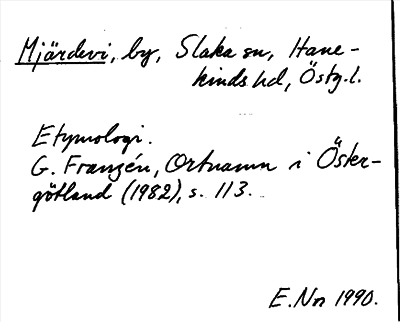 Mjärdevi, by, Slaka sn, Hane-
kinds hd, Östg.l.
Etymologi.
G. Franzén, Ortnamn i Öster-
götland (1982), s. 113.
E.Nn 1990.